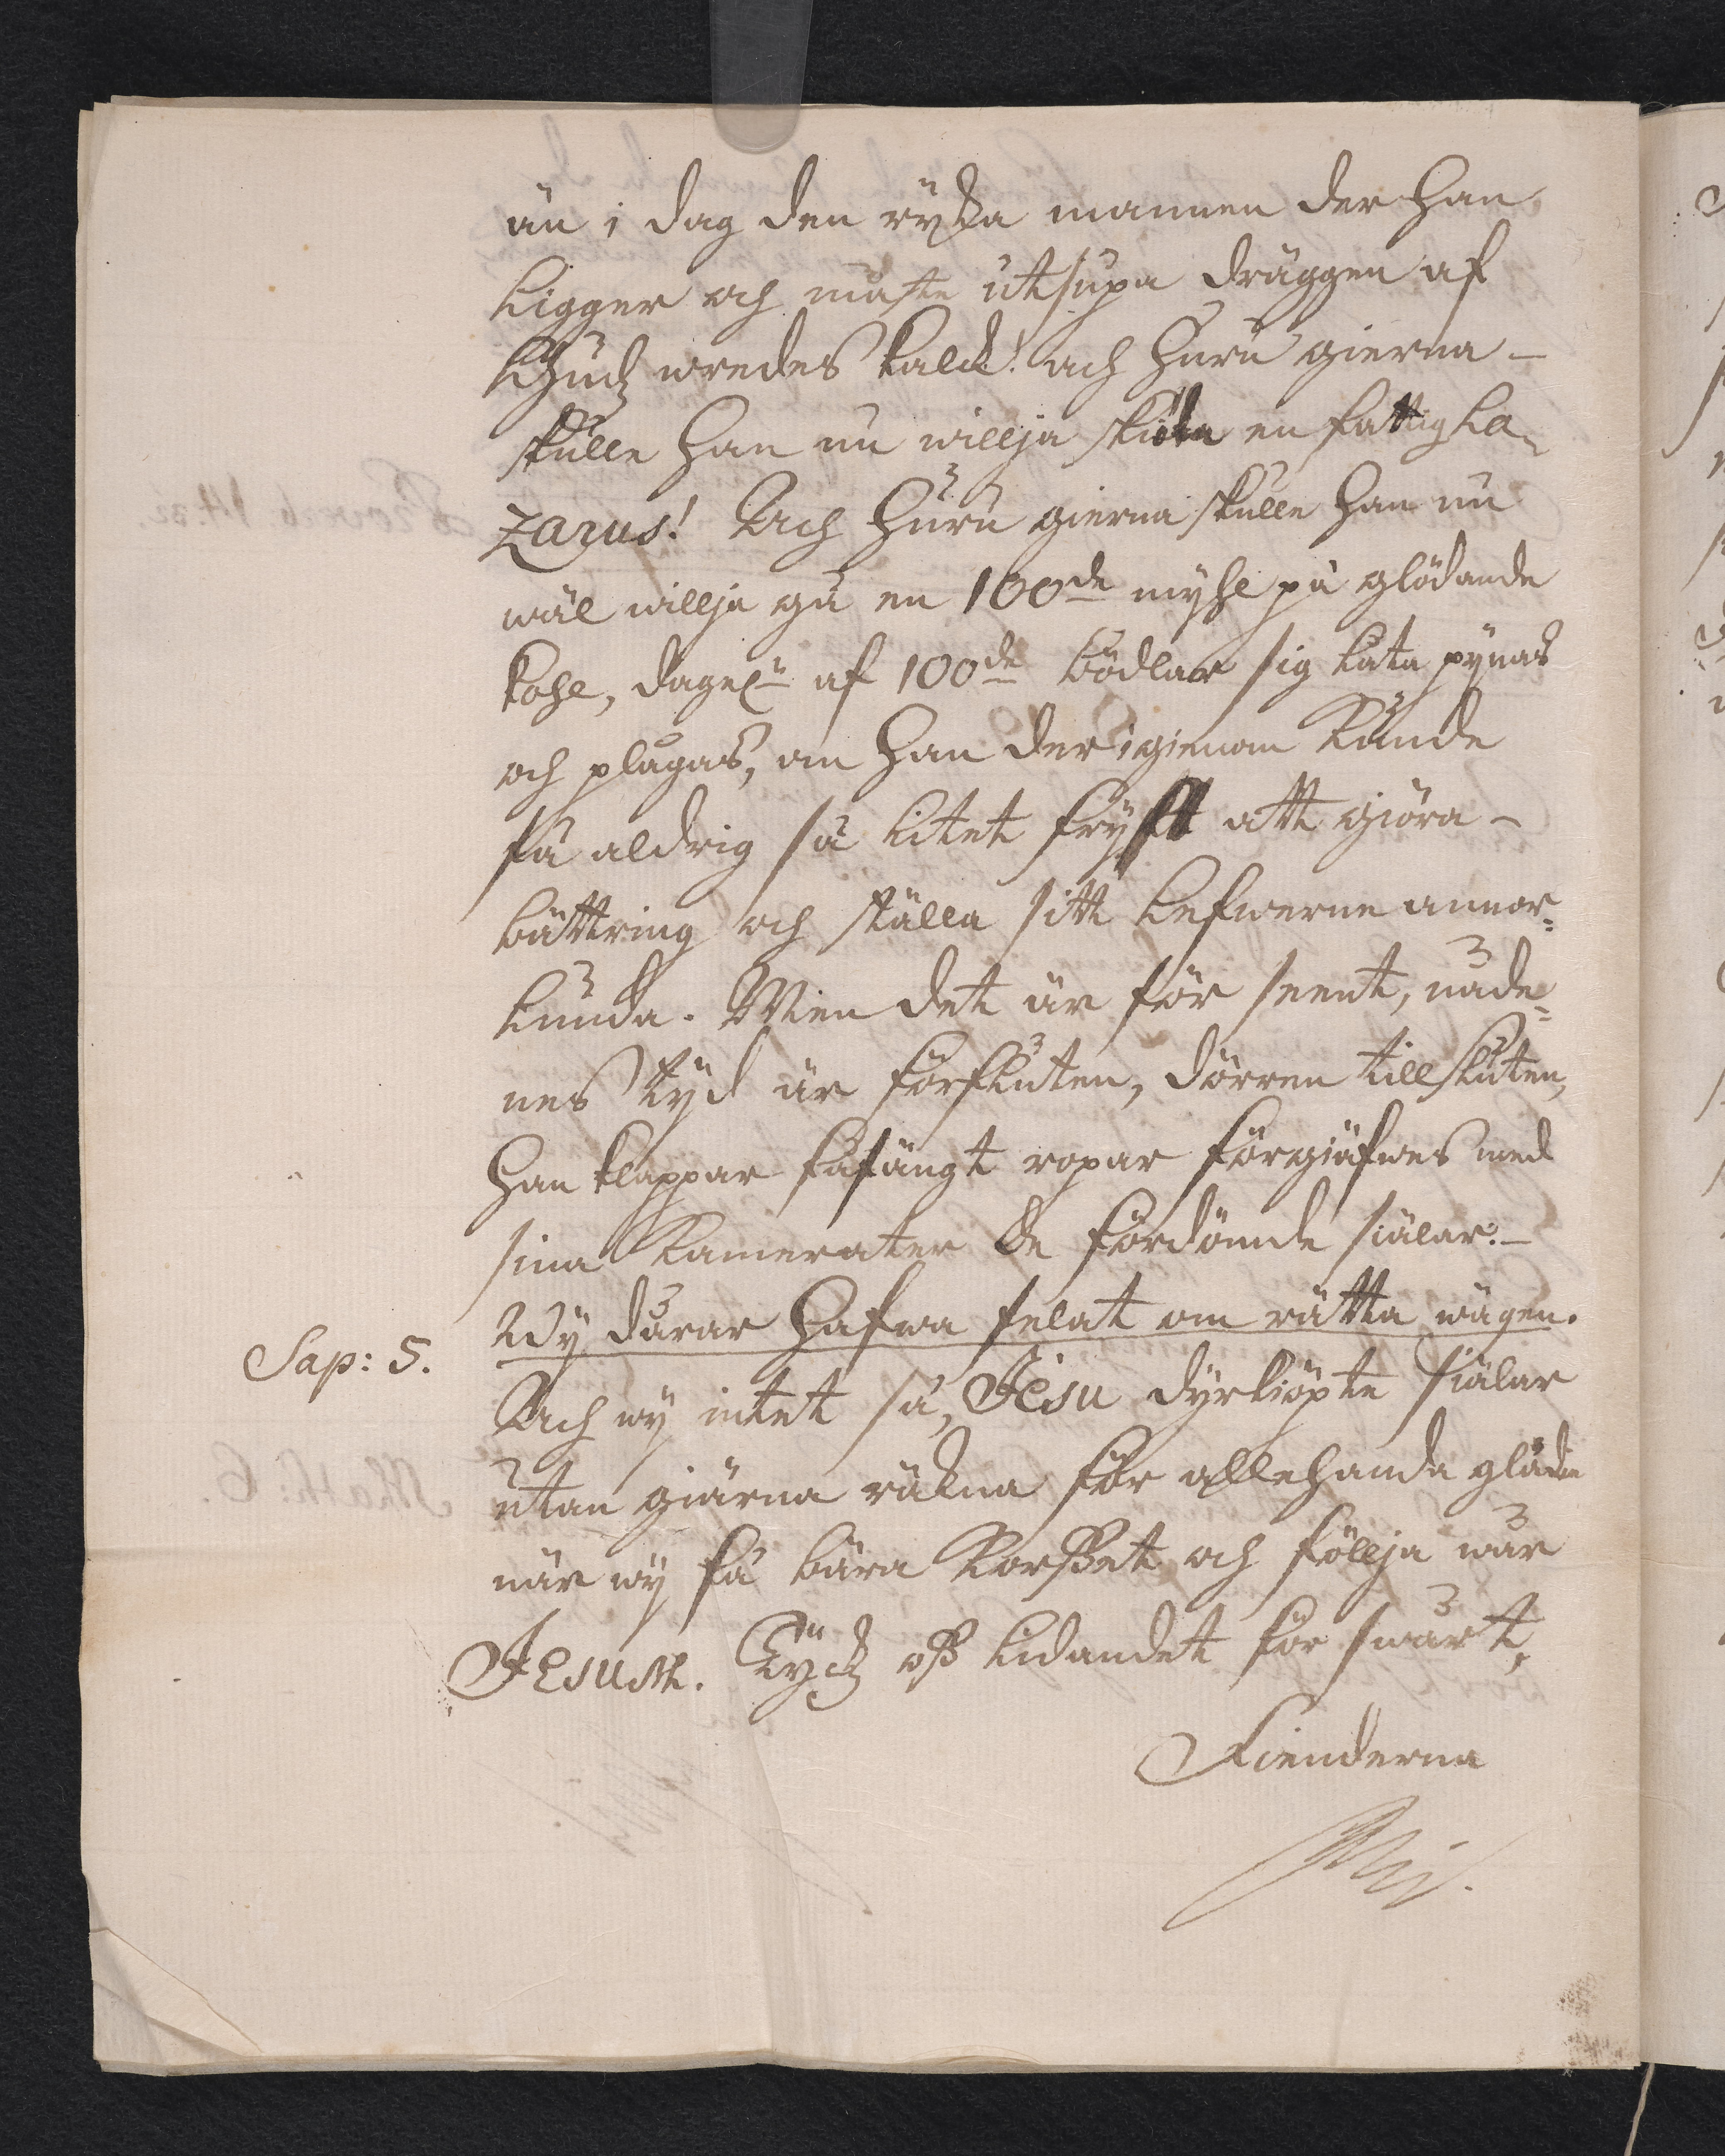 än i dag den ryka mannen der han
ligger och måste utsupa dräggen af
Gudz wredes kalck! ach huru gierna -
skulle han nu willja skiöta en fattig La-
zarus! Ach huru gierna skulle han nu
wäl willja gå en 100de myhl på glödande
kohl, dagel. af 100de bödlar sig låta pynas
och plågas, om han der igienom kunde
få aldrig så litet fryst att giöra -
bättring och ställa sitt lefwerne annor=
lunda. Men det är för seent, nåde=
nes tyd är förfluten, dörren tillsluten,
han klappar fåfängt ropar förgiäfwes med
sina Kamerater de fördömde siälar. -
Sap: 5. Wy dårar hafwa felat om rätta wägen.
Ach wy intet så, Jesu dyrkiöpte siälar
utan giärna räkna för allehanda glädie
när wy få bära Korsset och föllja wår
Jesum. Tyckz oss lidandet för swårt,
Fienderna